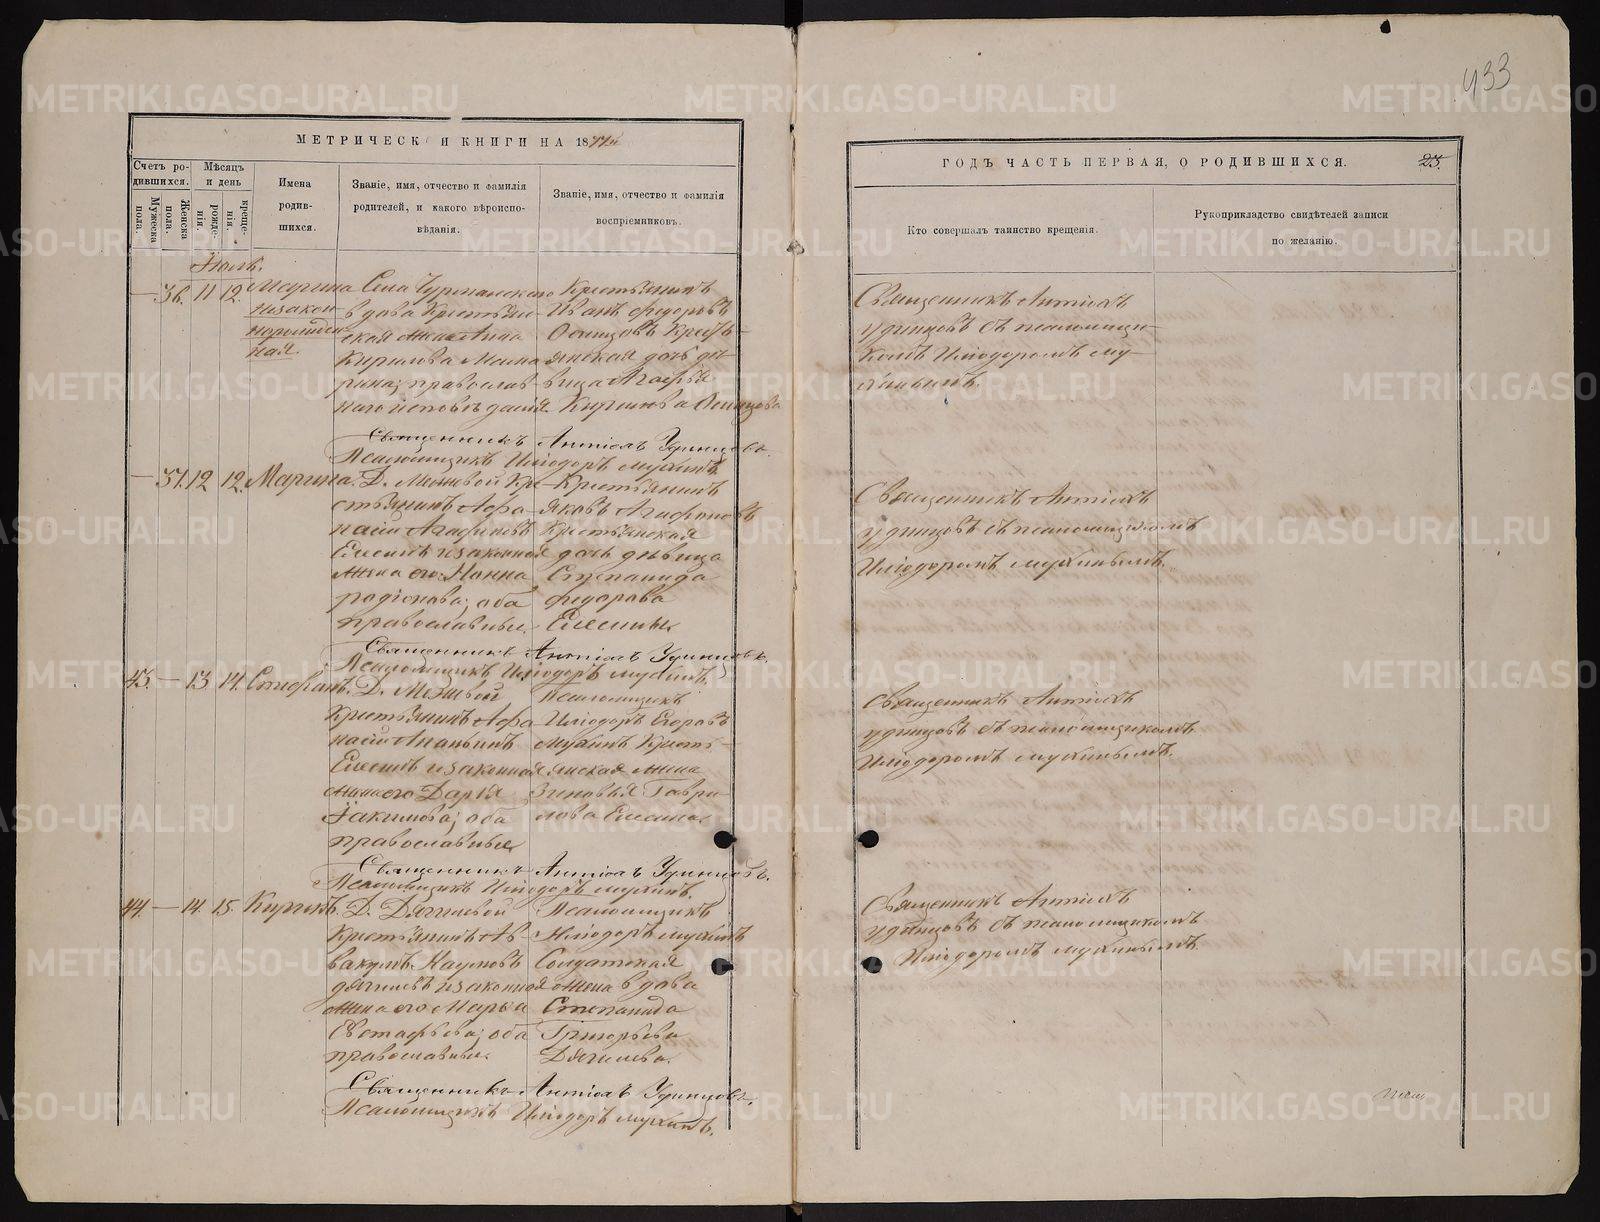 433
МЕТРИЧЕСКОЯ КНИГИ НА 1877й
ГОДЪ ЧАСТЬ ПЕРВАЯ, О РОДИВШИХСЯ.
23.
Счетъ родившихся.
Мужеска пола.
Женска пола.
Мѣсяцъ и день
рожденія.
крещенія.
Имена родившихся.
Званіе, имя, отчество и фамилія родителей, и какого вѣроисповѣданія.
Званіе, имя, отчество и фамилія воспріемниковъ.
Кто совершалъ таинство крещенія.
Рукоприкладство свидѣтелей записи по желанію.
Іюль.
— 36. 11 12. Марина
незаконнорожденная.
Села Чурманскаго
вдова Крестьянская жена Анна
Кирилова Мамарина; православнаго исповѣданія.
Крестьянинъ
Иванъ Федоровъ
Осинцовъ Крестьянская дочь дѣвица Агафья
Кирилова Осинцова
Священникъ Антіохъ
Удинцовъ съ псаломщикомъ Иліодоромъ Мухинымъ.
Священникъ Антіохъ Удинцовъ.
Псаломщикъ Иліодоръ Мухинъ.
— 37. 12 12. Марина.
Д. Межевой Крестьянинъ Афанасій Агафоновъ
Елесинъ и законная
жена его Нонна
Родіонова; оба
православные.
Крестьянинъ
Яковъ Агафоновъ
Крестьянская
дочь дѣвица
Степанида
Федорова
Елесины
Священникъ Антіохъ
Удинцовъ съ псаломщикомъ
Иліодоромъ Мухинымъ.
Священникъ Антіохъ Удинцовъ.
Псаломщикъ Иліодоръ Мухинъ.
43. — 13 14. Стефанъ.
Д. Межевой
Крестьянинъ Афанасій Ананьинъ
Елесинъ и законная
жена его Дарія
Іакимова; оба
православные
Псаломщикъ
Иліодоръ Егоровъ
Мухинъ Крестьянская жена
Зиновья Гаврилова Елесина.
Священникъ Антіохъ
Удинцовъ съ псаломщикомъ
Иліодоромъ Мухинымъ.
Священникъ Антіохъ Удинцовъ.
Псаломщикъ Иліодоръ Мухинъ.
44. — 14. 15. Кирикъ.
Д. Дягилевой
Крестьянинъ Аввакумъ Наумовъ
Дягилевъ и законная
жена его Марья
Евстафьева; оба
православные.
Псаломщикъ
Иліодоръ Мухинъ
Солдатская
жена вдова
Степанида
Григорьева
Дягилева.
Священникъ Антіохъ
Удинцовъ съ псаломщикомъ
Иліодоромъ Мухинымъ.
Священникъ Антіохъ Удинцовъ.
Псаломщикъ Иліодоръ Мухинъ.
METRIKI.GASO-URAL.RU